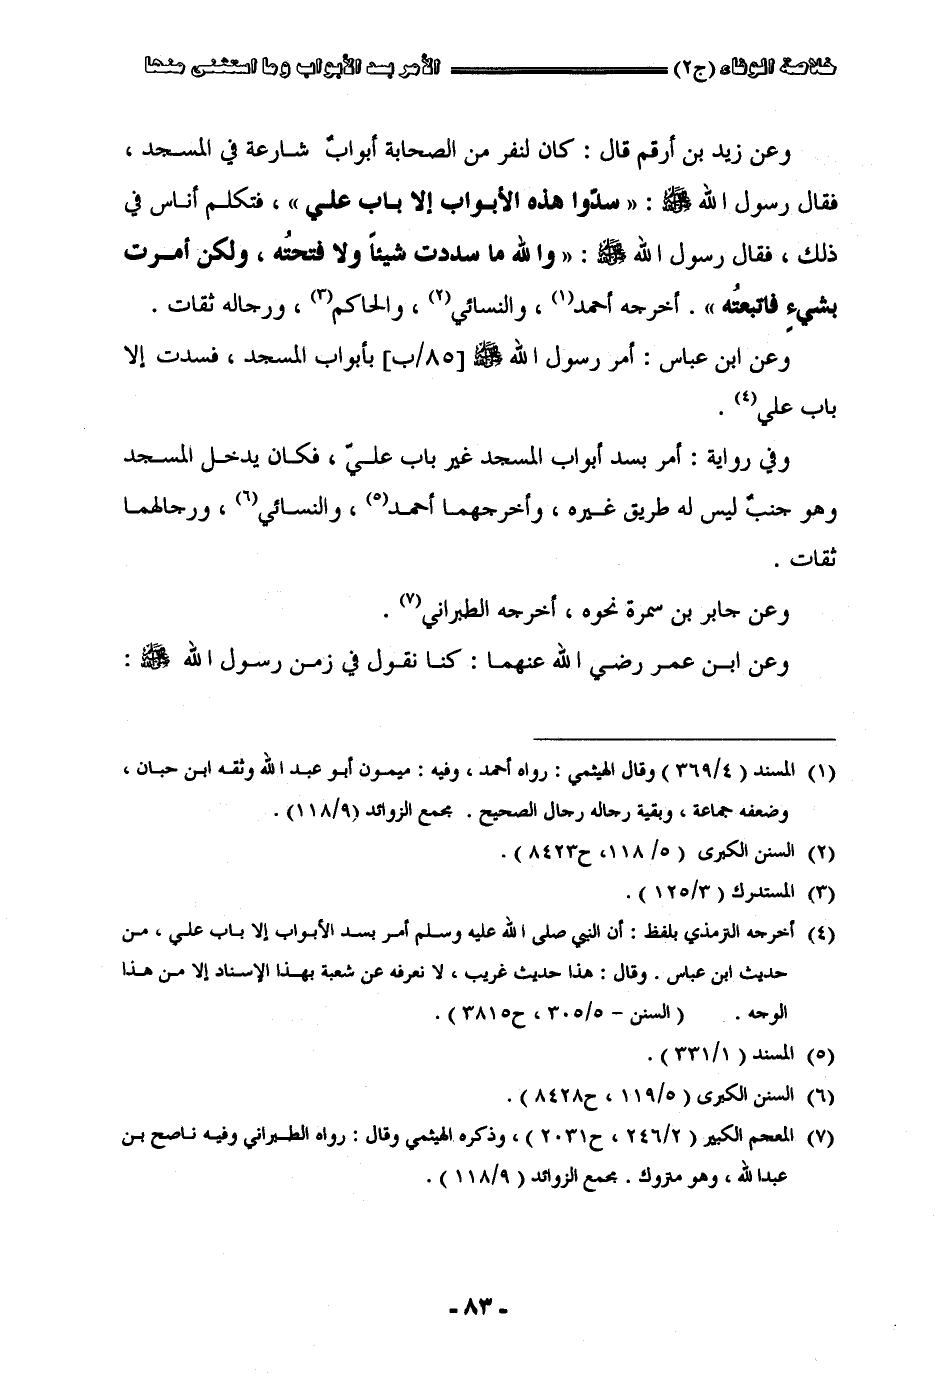 خلاصة الوفاء (ج٢) الأمر بسد الأبواب وما استثنى منها
وعن زيد بن أرقم قال : كان لنفر من الصحابة أبوابٌ شارعة في المسجد ،
فقال رسول الله ﷺ : « سدّوا هذه الأبواب إلا باب علي » ، فتكلم أناس في
ذلك ، فقال رسول الله ﷺ : « والله ما سددت شيئاً ولا فتحتُه ، ولكن أمرت
بشيءٍ فاتبعتُه » . أخرجه أحمد(١) ، والنسائي(٢) ، والحاكم(٣) ، ورجاله ثقات .
وعن ابن عباس : أمر رسول الله ﷺ [٨٥/ب] بأبواب المسجد ، فسدت إلا
باب علي(٤) .
وفي رواية : أمر بسد أبواب المسجد غير باب عليّ ، فكان يدخل المسجد
وهو جنبٌ ليس له طريق غيره ، وأخرجهما أحمد(٥) ، والنسائي(٦) ، ورجالهما
ثقات .
وعن جابر بن سمرة نحوه ، أخرجه الطبراني(٧) .
وعن ابن عمر رضي الله عنهما : كنا نقول في زمن رسول الله ﷺ :
(١) المسند ( ٣٦٩/٤ ) وقال الهيثمي : رواه أحمد ، وفيه : ميمون أبو عبد الله وثقه ابن حبان ،
وضعفه جماعة ، وبقية رجاله رجال الصحيح . مجمع الزوائد (١١٨/٩) .
(٢) السنن الكبرى ( ٥/ ١١٨، ح٨٤٢٣ ) .
(٣) المستدرك ( ١٢٥/٣ ) .
(٤) أخرجه الترمذي بلفظ : أن النبي صلى الله عليه وسلم أمر بسد الأبواب إلا باب علي ، من
حديث ابن عباس . وقال : هذا حديث غريب ، لا نعرفه عن شعبة بهذا الإسناد إلا من هذا
الوجه . ( السنن – ٣٠٥/٥ ، ح٣٨١٥ ) .
(٥) المسند ( ٣٣١/١ ) .
(٦) السنن الكبرى ( ١١٩/٥ ، ح٨٤٢٨ ) .
(٧) المعجم الكبير ( ٢٤٦/٢ ، ح٢٠٣١ ) ، وذكره الهيثمي وقال : رواه الطبراني وفيه ناصح بن
عبدالله ، وهو متروك . مجمع الزوائد ( ١١٨/٩ ) .
- ٨٣ -